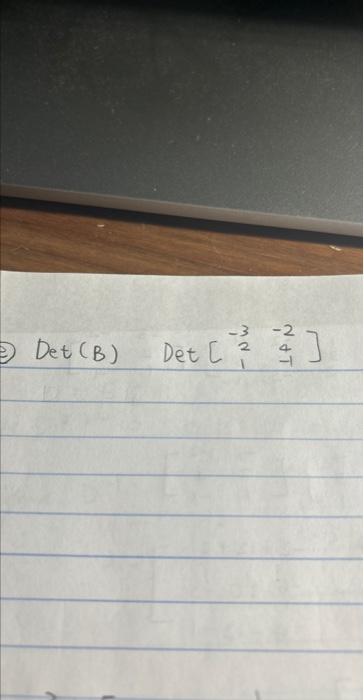 ② Det (B) Det [ -3 -2
2 4
1 -1 ]